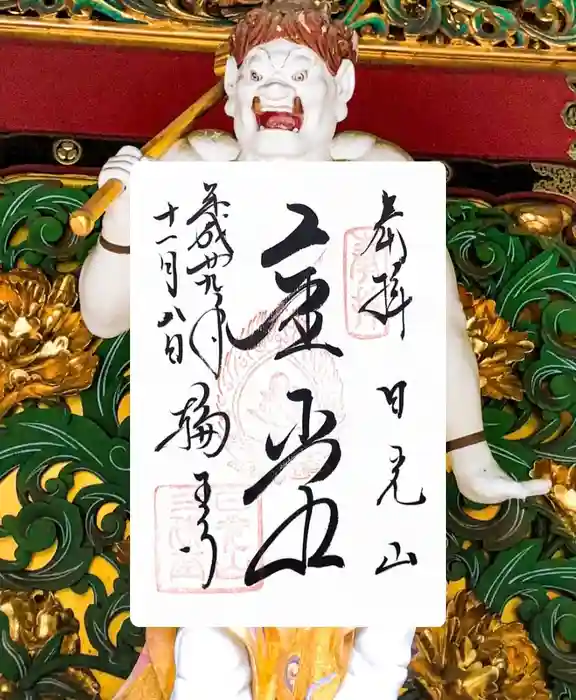 奉拝 日光山
金堂
平成廿九年 輪王寺
十一月八日